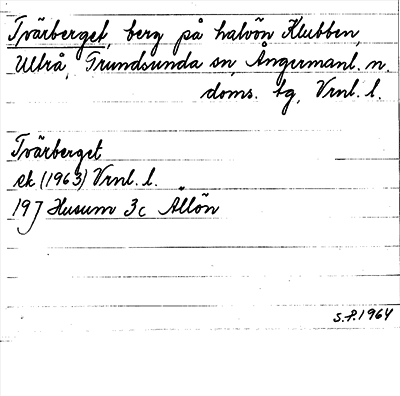 Tvärberget, berg på halvön Klubben,
Ultrå, Grundsunda sn, Ångermanl. n.
doms. tg, Vrnl. l.
Tvärberget
ek (1963) Vrnl. l.
19J Husum 3c Ållön
S.P. 1964